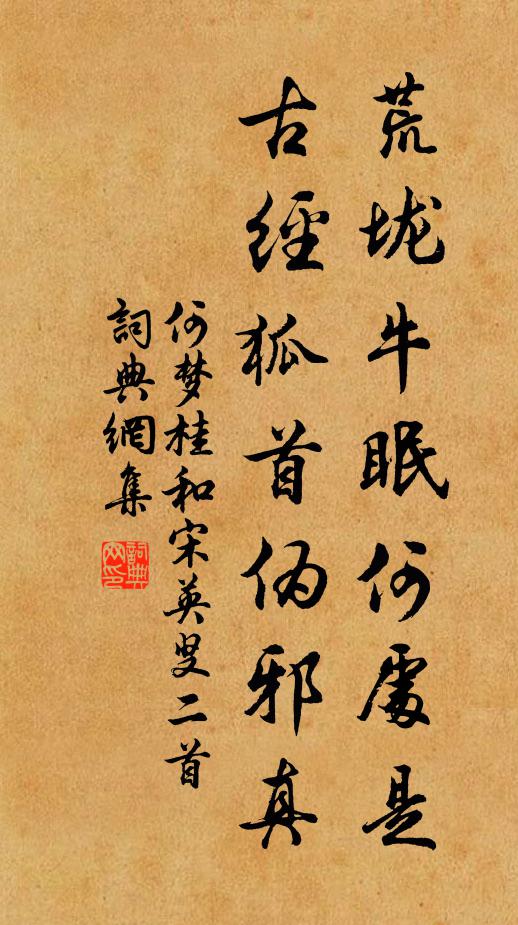 荒垅牛眠何處是
古經狐首伪邪真
何梦桂和宋英叟二首
詞典網集
詞典网印